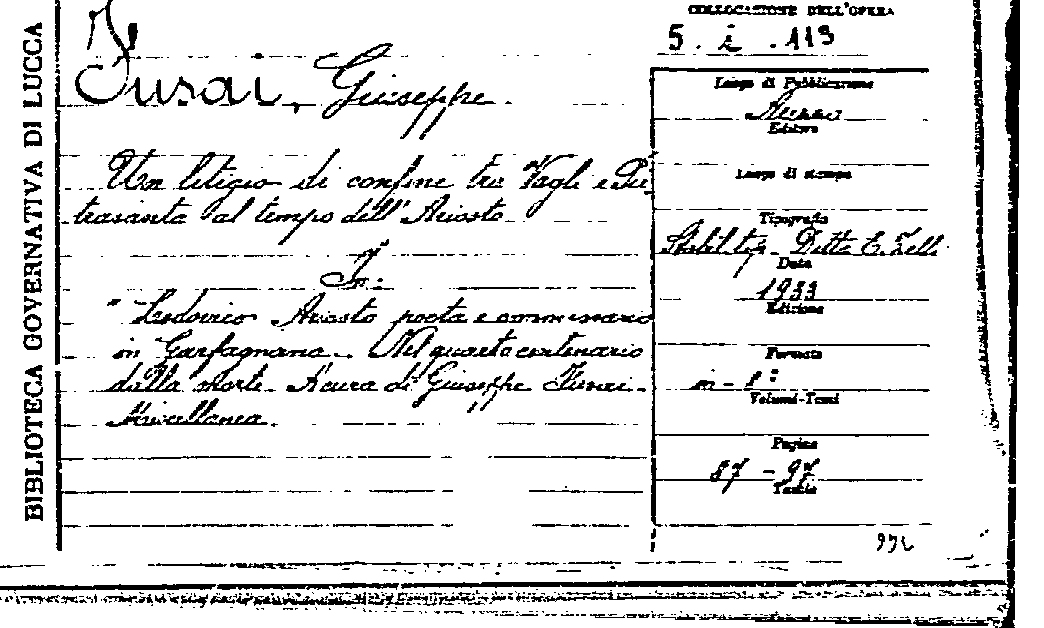 BIBLIOTECA GOVERNATIVA DI LUCCA
Fusai, Giuseppe.
Un litigio di confine tra Vagli e Pie
trasanta al tempo dell'Ariosto
In:
"Lodovico Ariosto poeta e commissario
in Garfagnana. Nel quarto centenario
dalla morte. A cura di Giuseppe Fusai.
Miscellanea.
COLLOCAZIONE DELL'OPERA
5. i. 113
Luogo di Pubblicazione
Editore
Luogo di stampa
Tipografo
Stabil. tip. Ditta E. Zelli
Data
1933
Edizione
Formato
in-8°
Volumi-Tomi
Pagine
87-97
Tavole